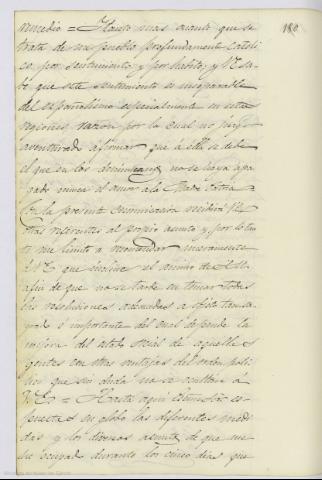 180
remedio = Tanto mas cuanto que se
trata de un pueblo profundamente catoli
co, por sentimiento y por habito, y V.E. sa
be que este sentimiento es inseparable
del españolismo especialmente en estas
regiones, razon por la cual no juzgo
aventurado afirmar que á ella se debe
el que en los dominicanos no se haya apa
gado nunca el amor a la Madre Patria =
Con la presente comunicacion recibirá V.E.
otras referentes al propio asunto y por lo tan
to me limito a recomendar nuevamente
á V.E. que incline el animo de S.M.
afin de que no se tarde en tomar todas
las resoluciones á este
é importante del cual depende la
mejora del estado social de aquellas
gentes con otras ventajas del orden poli
tico que sin duda no se ocultan á
V.E. = Hasta aqui Exmo. Sor. es
puestas en globo las diferentes medi
das y los diversos asuntos de que me
he ocupado durante los cinco dias que